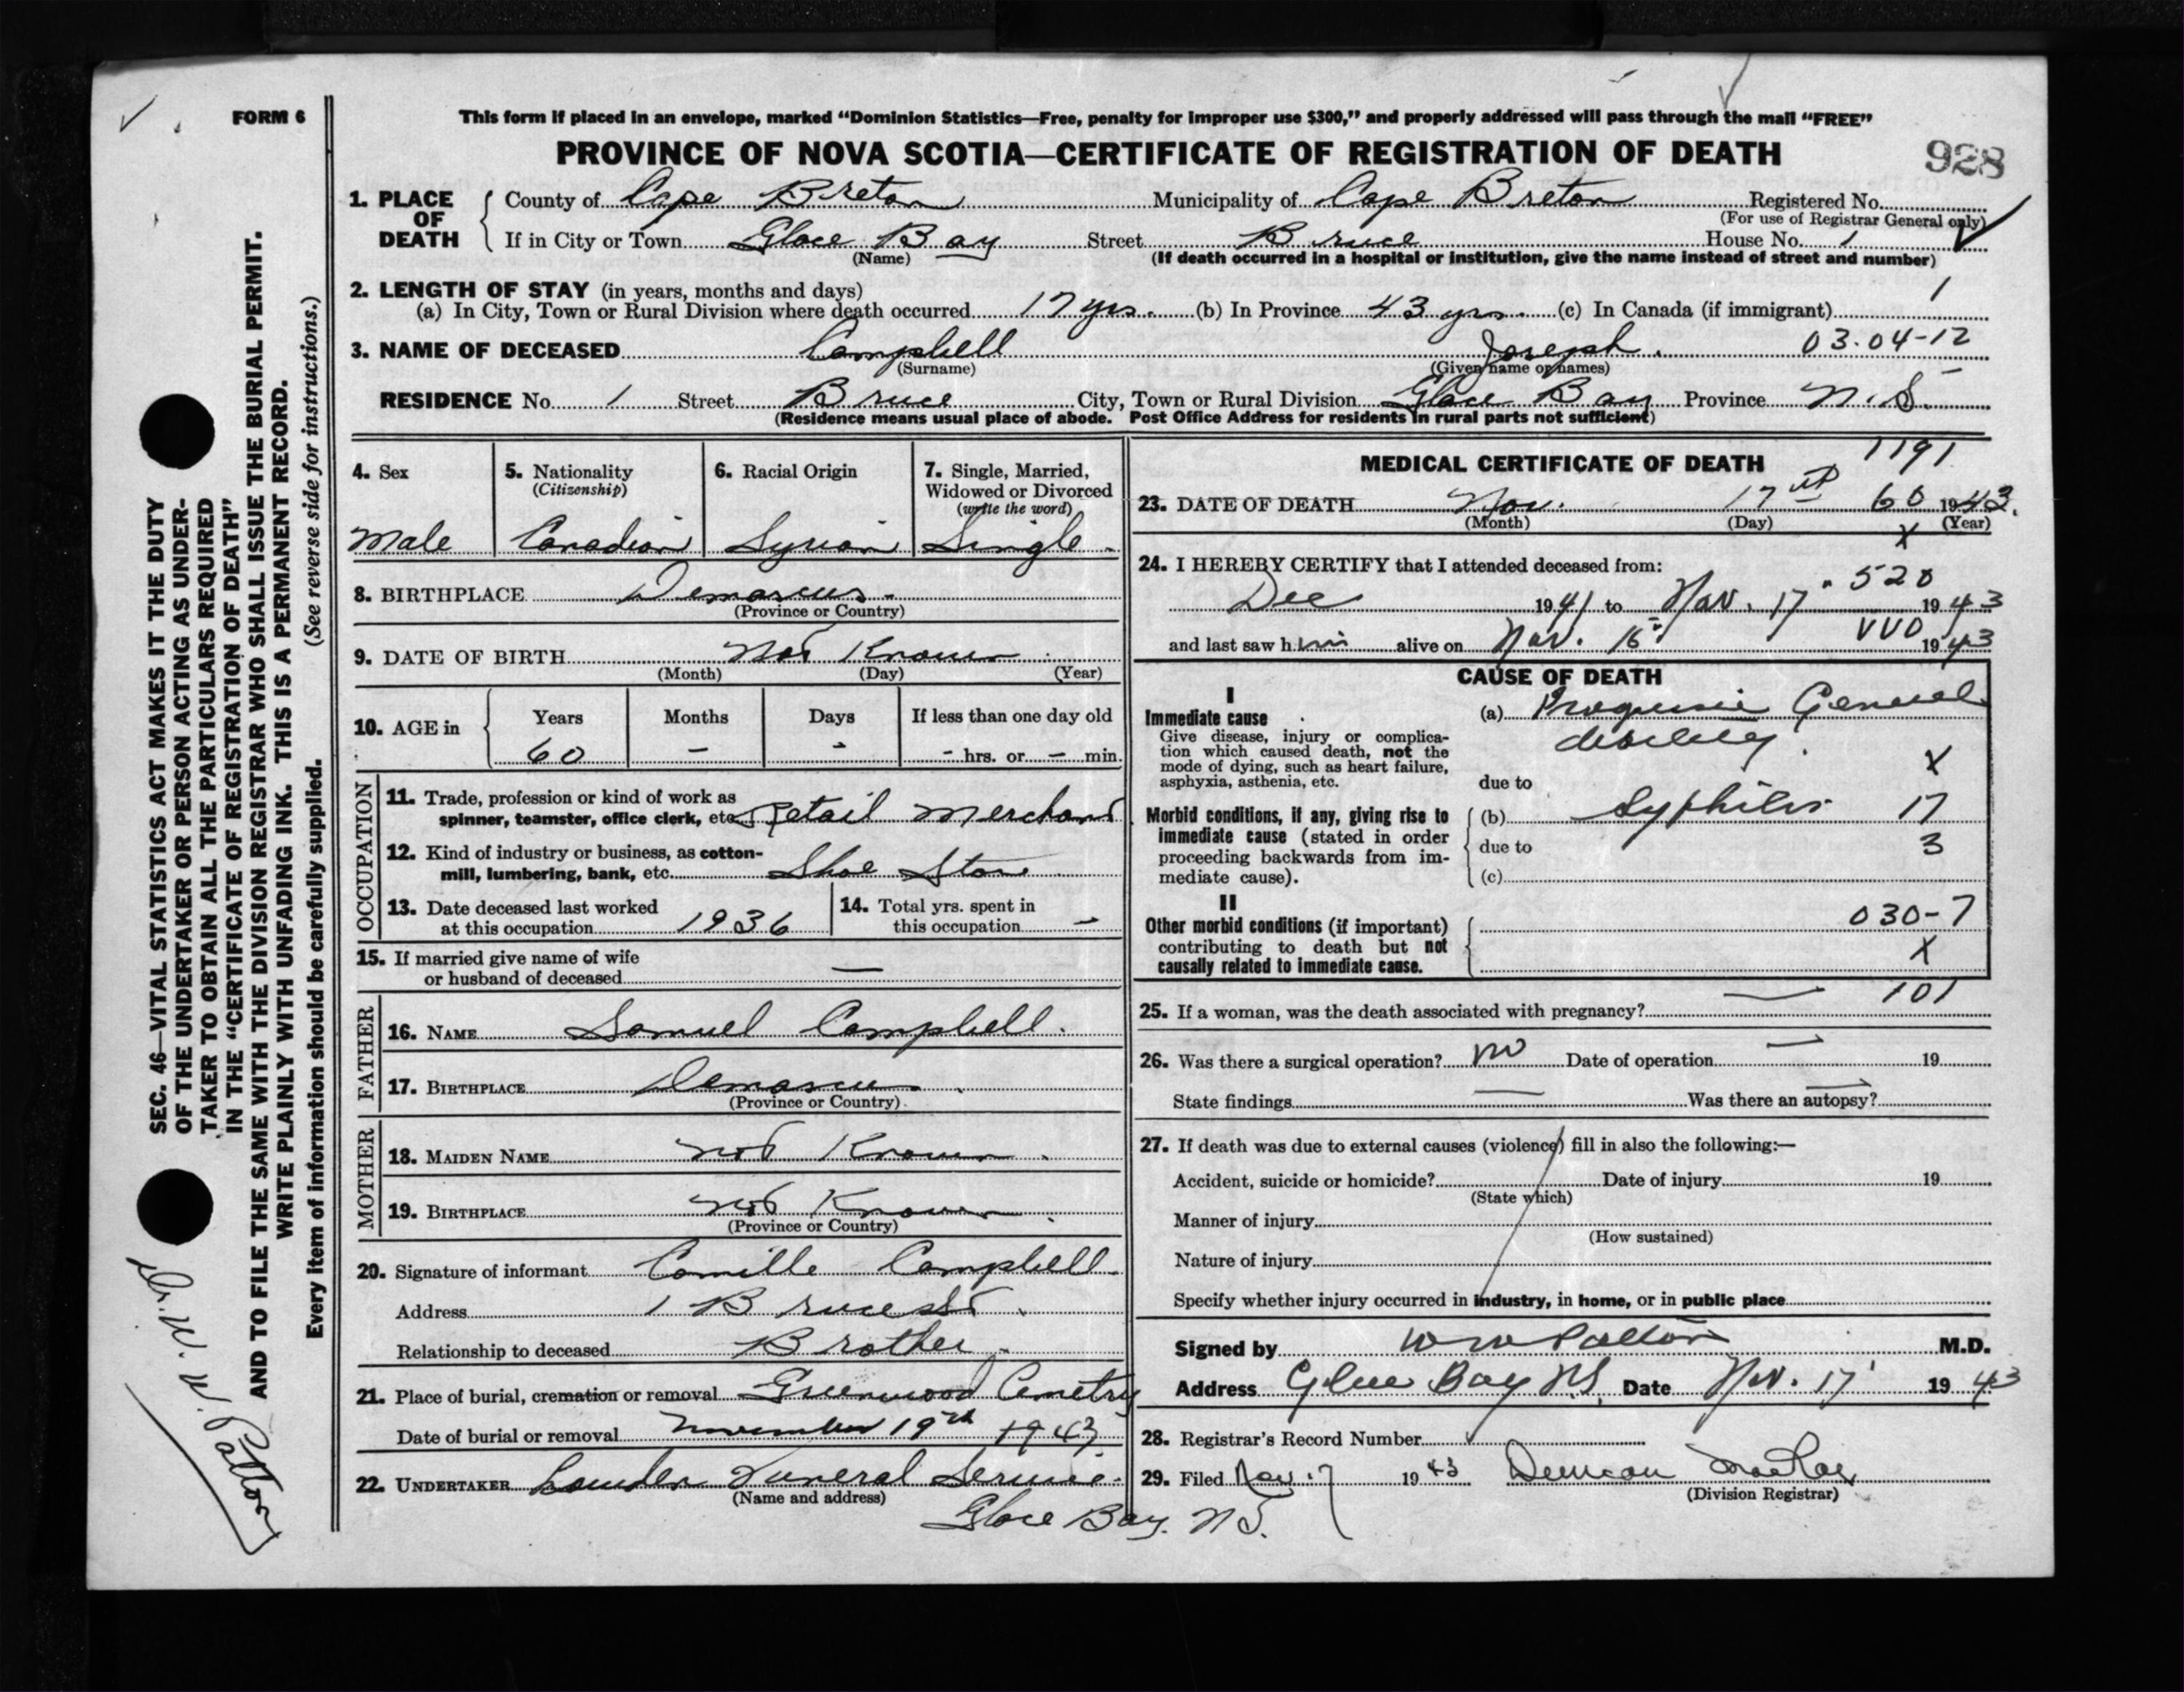 FORM 6
This form if placed in an envelope, marked “Dominion Statistics—Free, penalty for improper use $300,” and properly addressed will pass through the mail “FREE”
PROVINCE OF NOVA SCOTIA—CERTIFICATE OF REGISTRATION OF DEATH
928
1. PLACE OF DEATH County of Cape Breton Municipality of Cape Breton Registered No.
(For use of Registrar General only)
If in City or Town Glace Bay Street Bruce House No. 1
(Name) (If death occurred in a hospital or institution, give the name instead of street and number)
2. LENGTH OF STAY (in years, months and days) 1
(a) In City, Town or Rural Division where death occurred 17 yrs. (b) In Province 43 yrs. (c) In Canada (if immigrant)
3. NAME OF DECEASED Campbell Joseph. 03.04-12
(Surname) (Given name or names)
RESIDENCE No. 1 Street Bruce City, Town or Rural Division Glace Bay Province N.S.
(Residence means usual place of abode. Post Office Address for residents in rural parts not sufficient)
4. Sex
Male
5. Nationality
(Citizenship)
Canadian
6. Racial Origin
Syrian
7. Single, Married,
Widowed or Divorced
(write the word)
Single.
8. BIRTHPLACE Demarcus.
(Province or Country)
9. DATE OF BIRTH Not Known
(Month) (Day) (Year)
10. AGE in Years Months Days If less than one day old
60 – – – hrs. or – min.
OCCUPATION
11. Trade, profession or kind of work as
spinner, teamster, office clerk, etc. Retail Merchant
12. Kind of industry or business, as cotton-
mill, lumbering, bank, etc. Shoe Store
13. Date deceased last worked
at this occupation 1936
14. Total yrs. spent in
this occupation –
15. If married give name of wife
or husband of deceased —
FATHER
16. NAME Samuel Campbell.
17. BIRTHPLACE Demascus
(Province or Country)
MOTHER
18. MAIDEN NAME not Known.
19. BIRTHPLACE not Known.
(Province or Country)
20. Signature of informant Camille Campbell
Address 1 Bruce St.
Relationship to deceased Brother.
21. Place of burial, cremation or removal Greenwood Cemetry
Date of burial or removal November 19th 1943.
22. UNDERTAKER Funeral Service.
(Name and address)
Glace Bay. N.S.
MEDICAL CERTIFICATE OF DEATH 1191
23. DATE OF DEATH Nov. 17th 60 1943.
(Month) (Day) (Year)
X
24. I HEREBY CERTIFY that I attended deceased from:
520
Dec 1941 to Nov. 17 1943
VVO
and last saw him alive on Nov. 16 1943
CAUSE OF DEATH
I
Immediate cause
Give disease, injury or complica-
tion which caused death, not the
mode of dying, such as heart failure,
asphyxia, asthenia, etc.
(a) General
X
due to
Morbid conditions, if any, giving rise to
immediate cause (stated in order
proceeding backwards from im-
mediate cause).
(b) Syphilis 17
due to 3
(c)
II
Other morbid conditions (if important)
contributing to death but not
causally related to immediate cause.
030-7
X
101
25. If a woman, was the death associated with pregnancy? —
26. Was there a surgical operation? no Date of operation — 19
State findings — Was there an autopsy? —
27. If death was due to external causes (violence) fill in also the following:—
Accident, suicide or homicide? Date of injury 19
(State which)
Manner of injury
(How sustained)
Nature of injury
Specify whether injury occurred in industry, in home, or in public place
Signed by W W Patton M.D.
Address Glace Bay NS. Date Nov. 17 1943
28. Registrar's Record Number
29. Filed Nov. 17 1943 Duncan
(Division Registrar)
SEC. 46—VITAL STATISTICS ACT MAKES IT THE DUTY
OF THE UNDERTAKER OR PERSON ACTING AS UNDER-
TAKER TO OBTAIN ALL THE PARTICULARS REQUIRED
IN THE “CERTIFICATE OF REGISTRATION OF DEATH”
AND TO FILE THE SAME WITH THE DIVISION REGISTRAR WHO SHALL ISSUE THE BURIAL PERMIT.
WRITE PLAINLY WITH UNFADING INK. THIS IS A PERMANENT RECORD.
Every item of information should be carefully supplied. (See reverse side for instructions.)
Dr. W. W. Patton